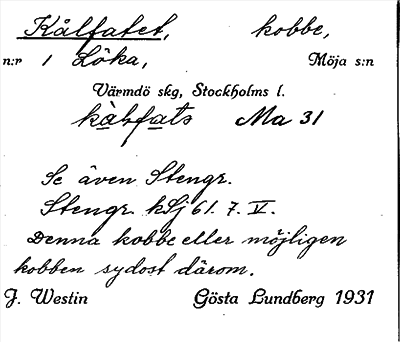 Kålfatet, kobbe,
n:r 1 Löka, Möja s:n
Värmdö skg, Stockholms l.
Ma 31
Se även Stengr.
Stengr. kSj 61. 7. V.
Denna kobbe eller möjligen
kobben sydost därom.
J. Westin Gösta Lundberg 1931